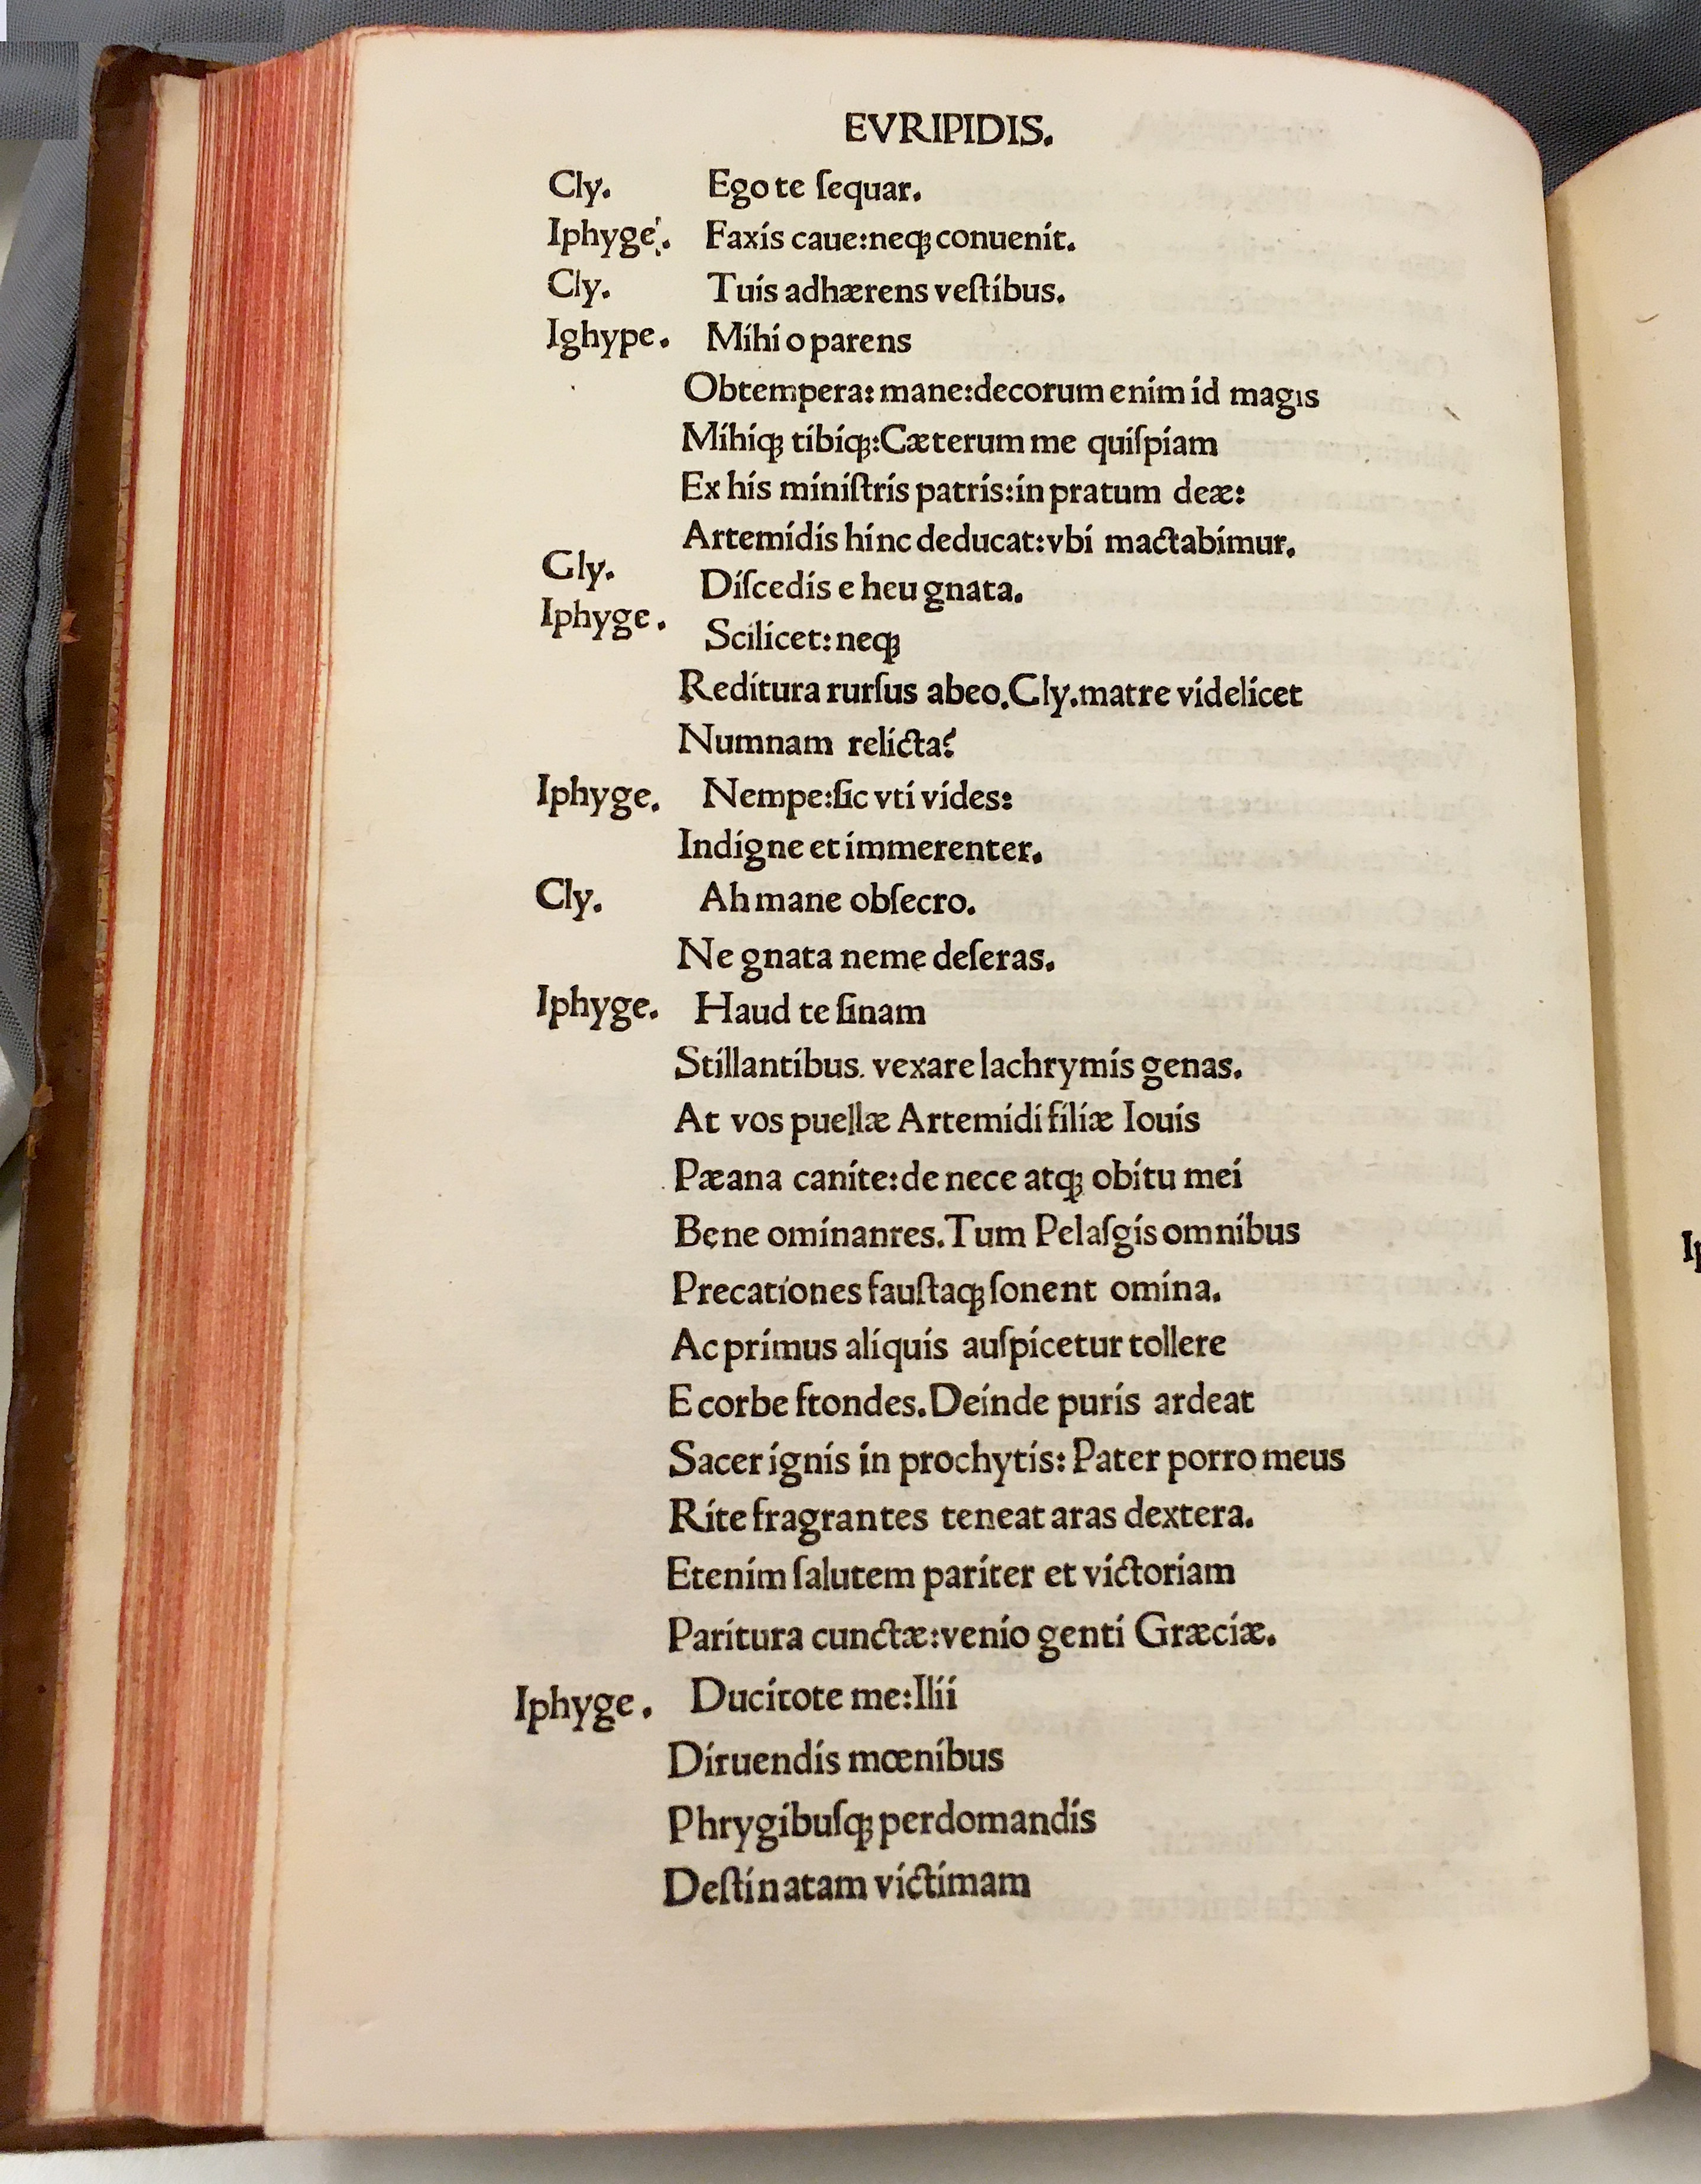 EVRIPIDIS.
Cly. Ego te ſequar.
Iphyge'. Faxis caue:neqꝫ conuenit.
Cly. Tuis adhærens veſtibus.
Ighype. Mihi o parens
Obtempera: mane:decorum enim id magis
Mihiqꝫ tibiqꝫ:Cæterum me quiſpiam
Ex his miniſtris patris:in pratum deæ:
Artemidis hinc deducat:vbi mactabimur.
Gly. Diſcedis e heu gnata.
Iphyge. Scilicet:neqꝫ
Reditura rurſus abeo.Gly.matre videlicet
Numnam relicta?
Iphyge. Nempe:ſic vti vides:
Indigne et immerenter.
Cly. Ah mane obſecro.
Ne gnata neme deſeras.
Iphyge. Haud te ſinam
Stillantibus. vexare lachrymis genas.
At vos puellæ Artemidi filiæ Iouis
Pæana canite:de nece atqꝫ obitu mei
Bene ominanres.Tum Pelaſgis omnibus
Precationes fauſtaqꝫ ſonent omina.
Ac primus aliquis auſpicetur tollere
E corbe ftondes.Deinde puris ardeat
Sacer ignis in prochytis: Pater porro meus
Rite fragrantes teneat aras dextera.
Etenim ſalutem pariter et victoriam
Paritura cunctæ:venio genti Græciæ.
Iphyge. Ducitote me:Ilii
Diruendis mœnibus
Phrygibuſqꝫ perdomandis
Deſtinatam victimam